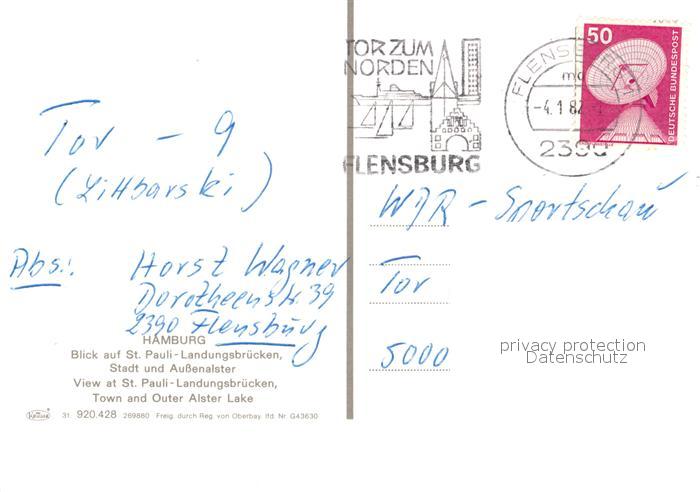 TOR ZUM
NORDEN
FLENSBURG
FLENSBURG
-4.1.82
2390
50
DEUTSCHE BUNDESPOST
Tor - 9
(Littbarski)
WDR - Sportschau
Tor
5000
Abs.: Horst Wagner
Dorotheenstr. 39
2390 Flensburg
HAMBURG
Blick auf St. Pauli-Landungsbrücken,
Stadt und Außenalster
View at St. Pauli-Landungsbrücken,
Town and Outer Alster Lake
31 920.428 269880 Freig. durch Reg. von Oberbay. lfd. Nr. G43630
privacy protection
Datenschutz